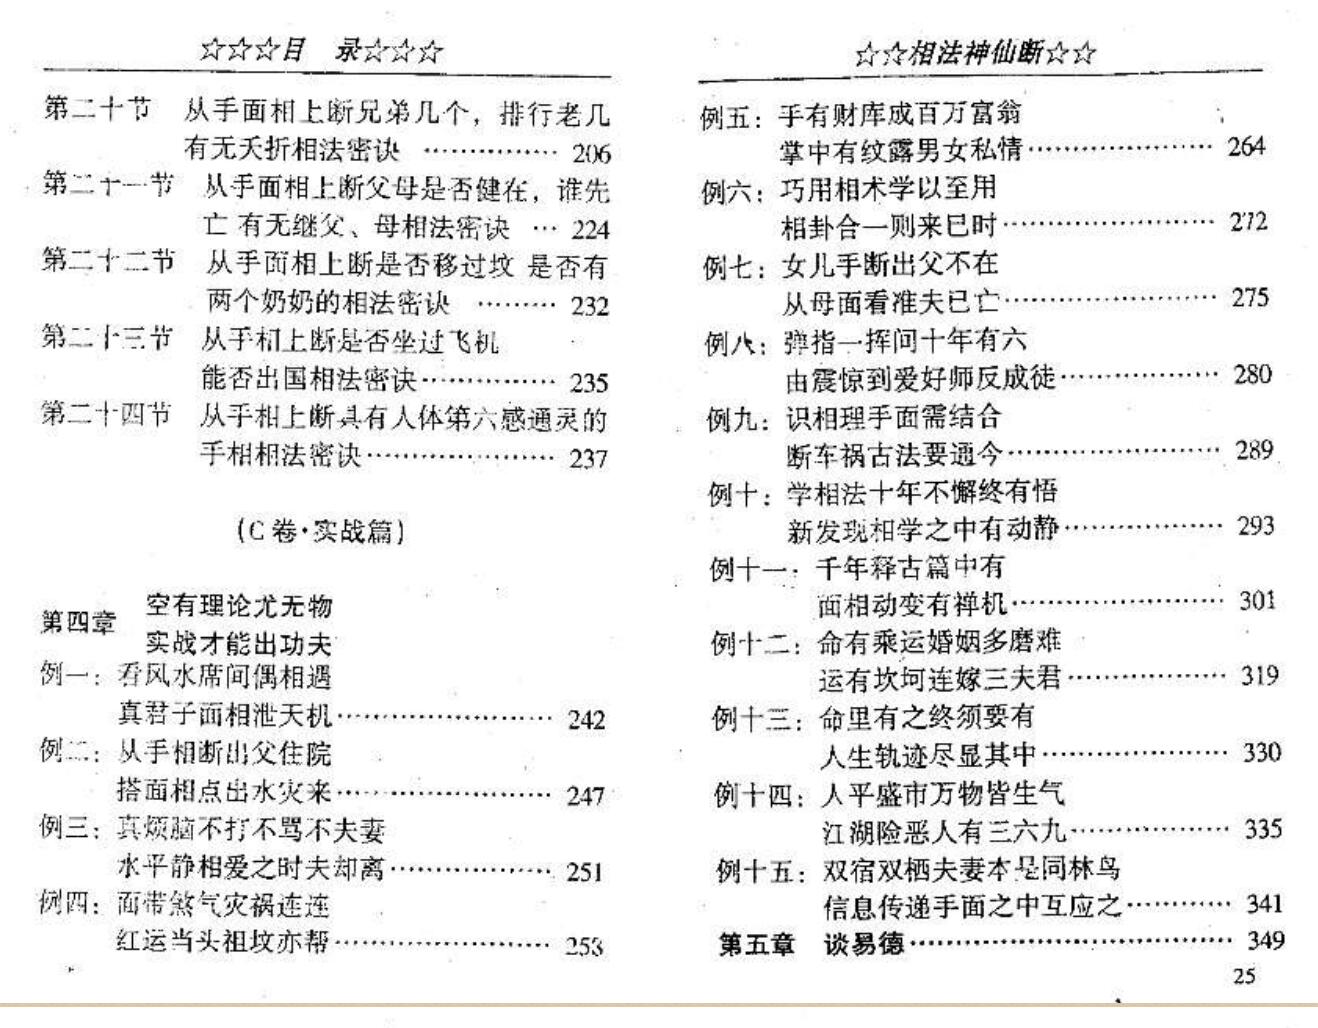 ☆☆☆目 录☆☆☆
第二十节 从手面相上断兄弟几个，排行老几
有无夭折相法密诀 …………… 206
第二十一节 从手面相上断父母是否健在，谁先
亡 有无继父、母相法密诀 … 224
第二十二节 从手面相上断是否移过坟 是否有
两个奶奶的相法密诀 ……… 232
第二十三节 从手相上断是否坐过飞机
能否出国相法密诀…………… 235
第二十四节 从手相上断具有人体第六感通灵的
手相相法密诀………………… 237
(C卷·实战篇)
第四章 空有理论尤无物
实战才能出功夫
例一：看风水席间偶相遇
真君子面相泄天机…………………… 242
例二：从手相断出父住院
搭面相点出水灾来…………………… 247
例三：真烦脑不打不骂不夫妻
水平静相爱之时夫却离……………… 251
例四：面带煞气灾祸连连
红运当头祖坟亦帮…………………… 253
☆☆相法神仙断☆☆
例五：手有财库成百万富翁
掌中有纹露男女私情………………… 264
例六：巧用相术学以至用
相卦合一则来巳时…………………… 272
例七：女儿手断出父不在
从母面看准夫已亡…………………… 275
例八：弹指一挥间十年有六
由震惊到爱好师反成徒……………… 280
例九：识相理手面需结合
断车祸古法要通今…………………… 289
例十：学相法十年不懈终有悟
新发现相学之中有动静……………… 293
例十一：千年释古篇中有
面相动变有禅机…………………… 301
例十二：命有乘运婚姻多磨难
运有坎坷连嫁三夫君……………… 319
例十三：命里有之终须要有
人生轨迹尽显其中………………… 330
例十四：人平盛市万物皆生气
江湖险恶人有三六九……………… 335
例十五：双宿双栖夫妻本是同林鸟
信息传递手面之中互应之………… 341
第五章 谈易德……………………………… 349
25